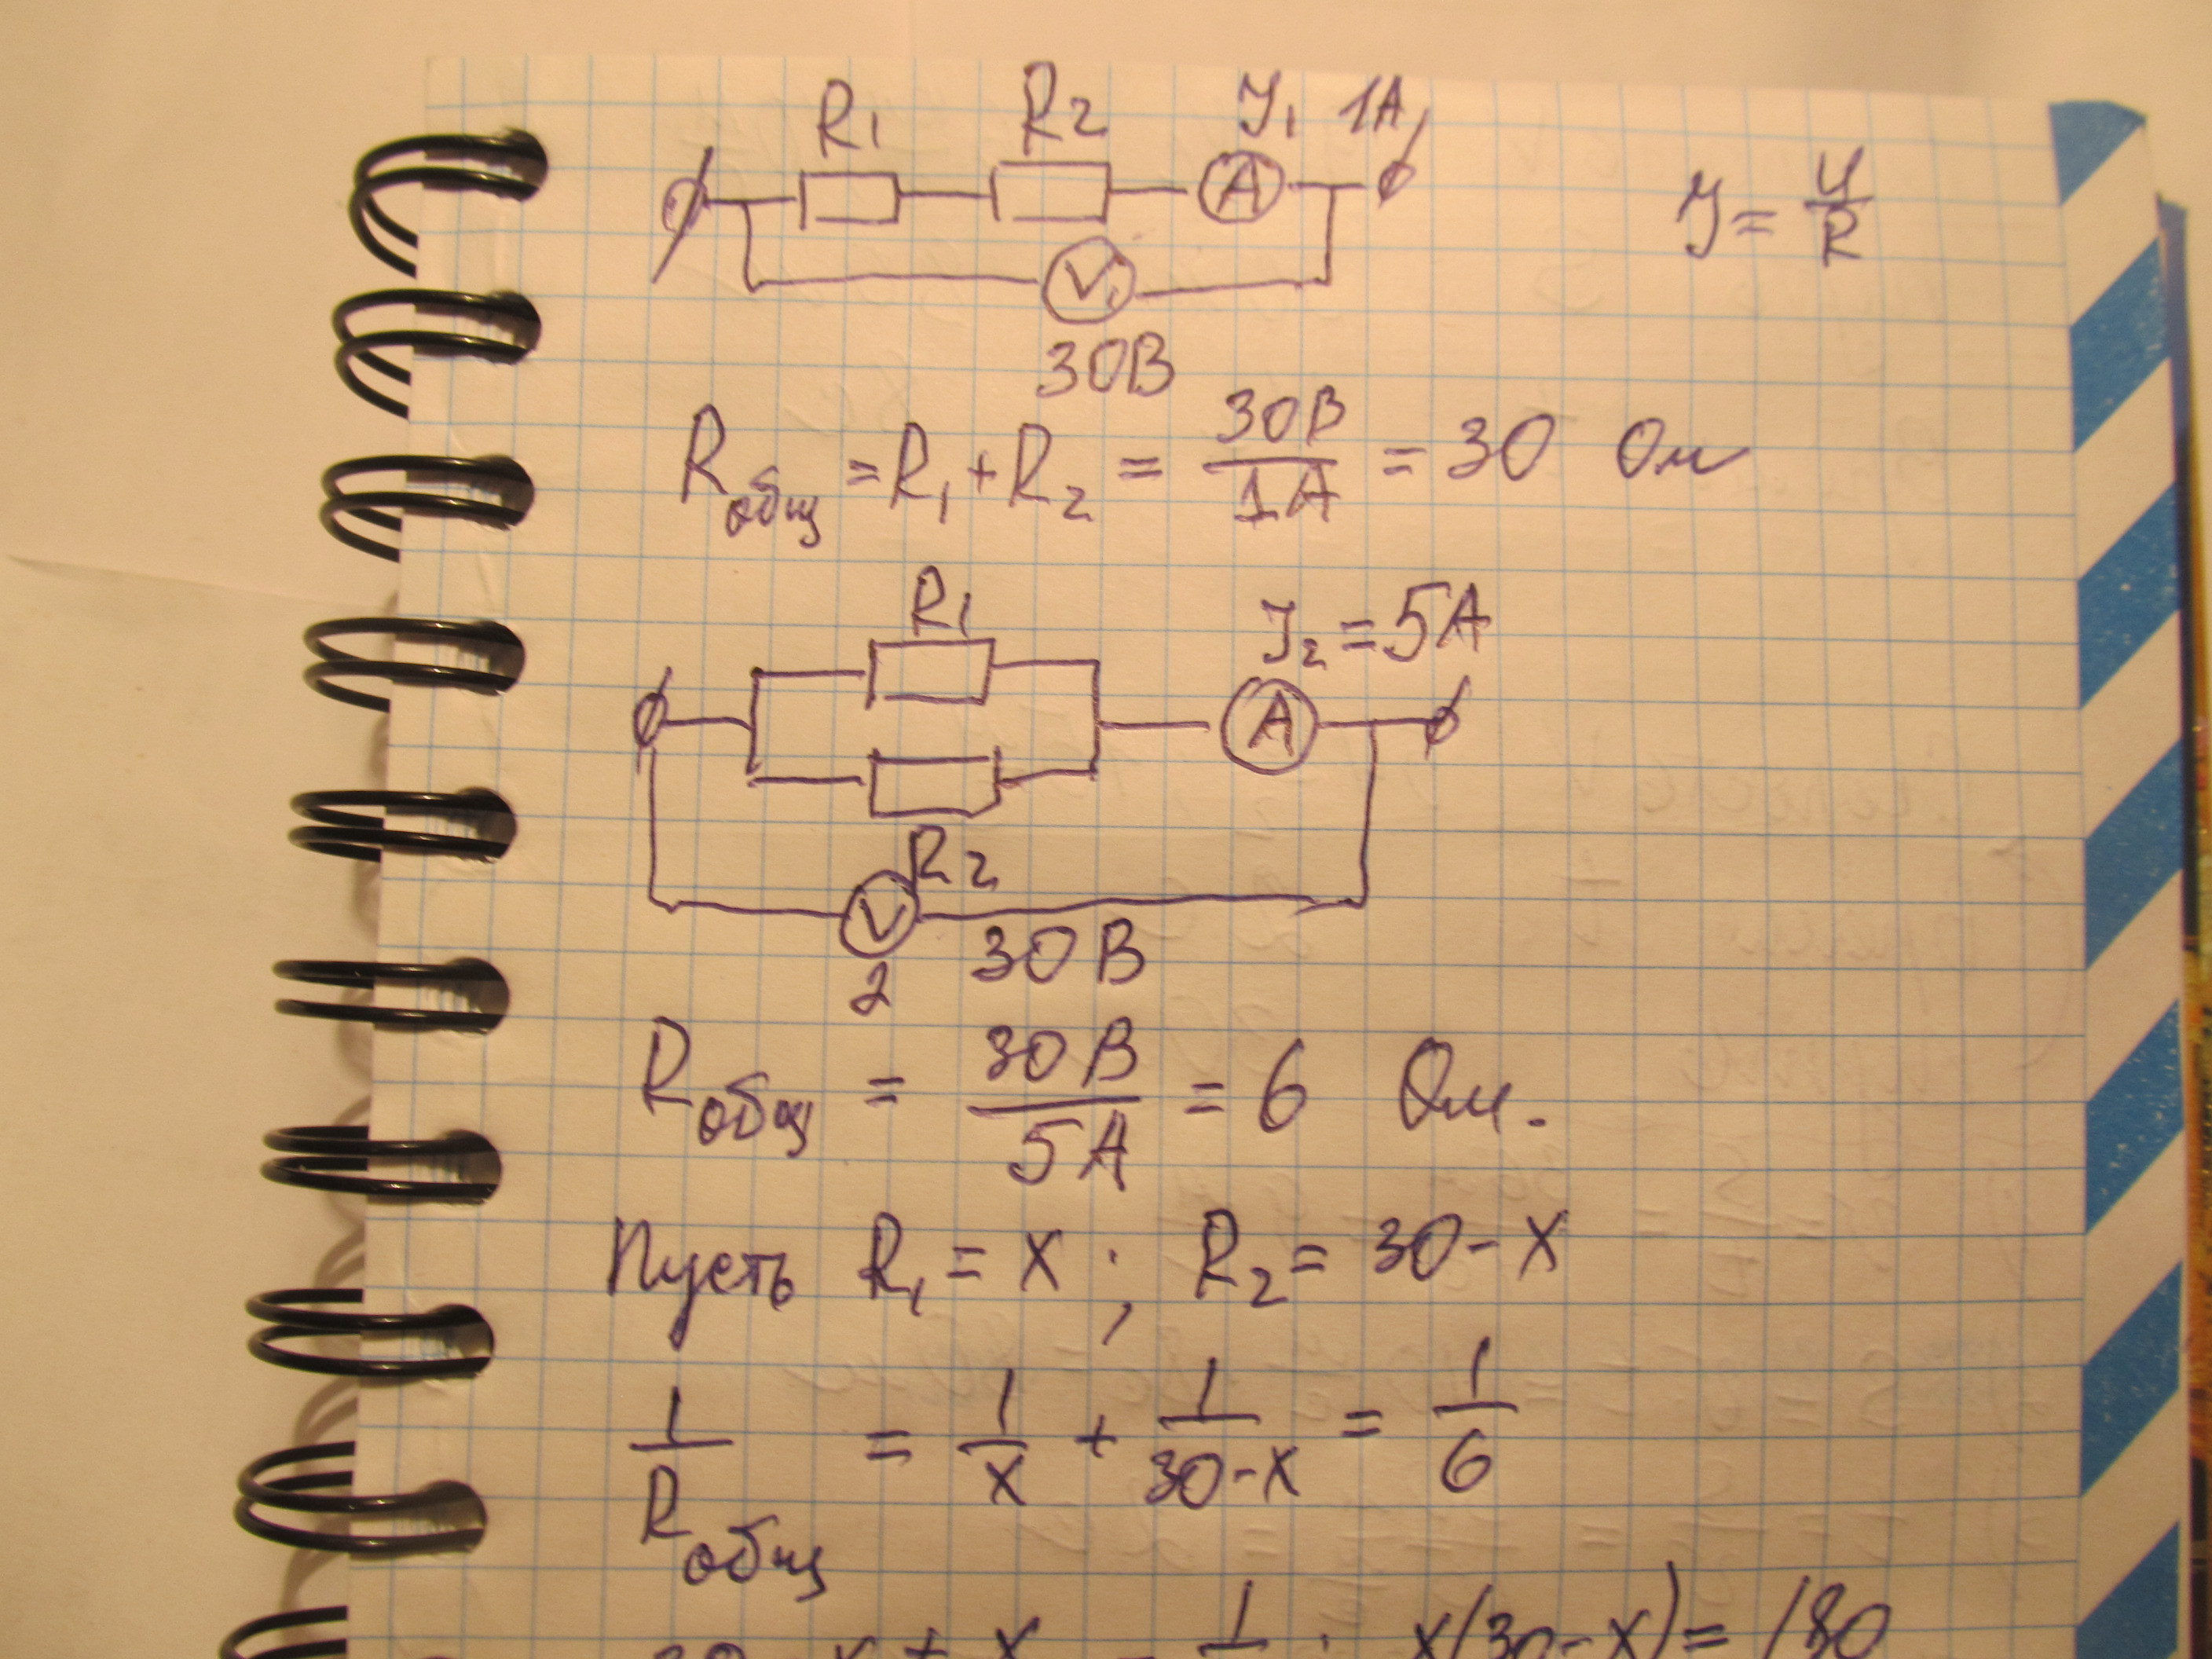 R1 R2 J₁ 1A
A
J = U/R
V₁
30В
Rобщ = R₁ + R₂ = 30В/1А = 30 Ом
R1
J₂ = 5А
A
R2
V
2
30 В
Rобщ = 30 В/5А = 6 Ом.
Пусть R₁ = x ; R₂ = 30 - x
1/Rобщ = 1/x + 1/30-x = 1/6
x(30-x) = 180